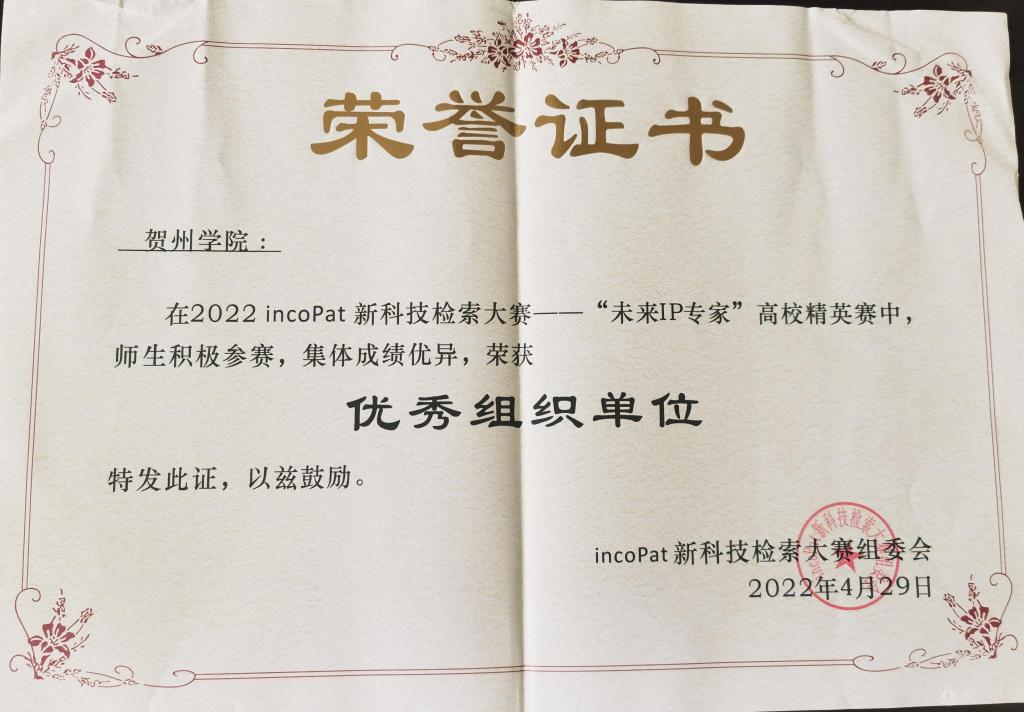 荣誉证书
贺州学院：
在2022 incoPat 新科技检索大赛——“未来IP专家”高校精英赛中，
师生积极参赛，集体成绩优异，荣获
优秀组织单位
特发此证，以兹鼓励。
incoPat 新科技检索大赛组委会
2022年4月29日
incoPat新科技检索大赛组委会